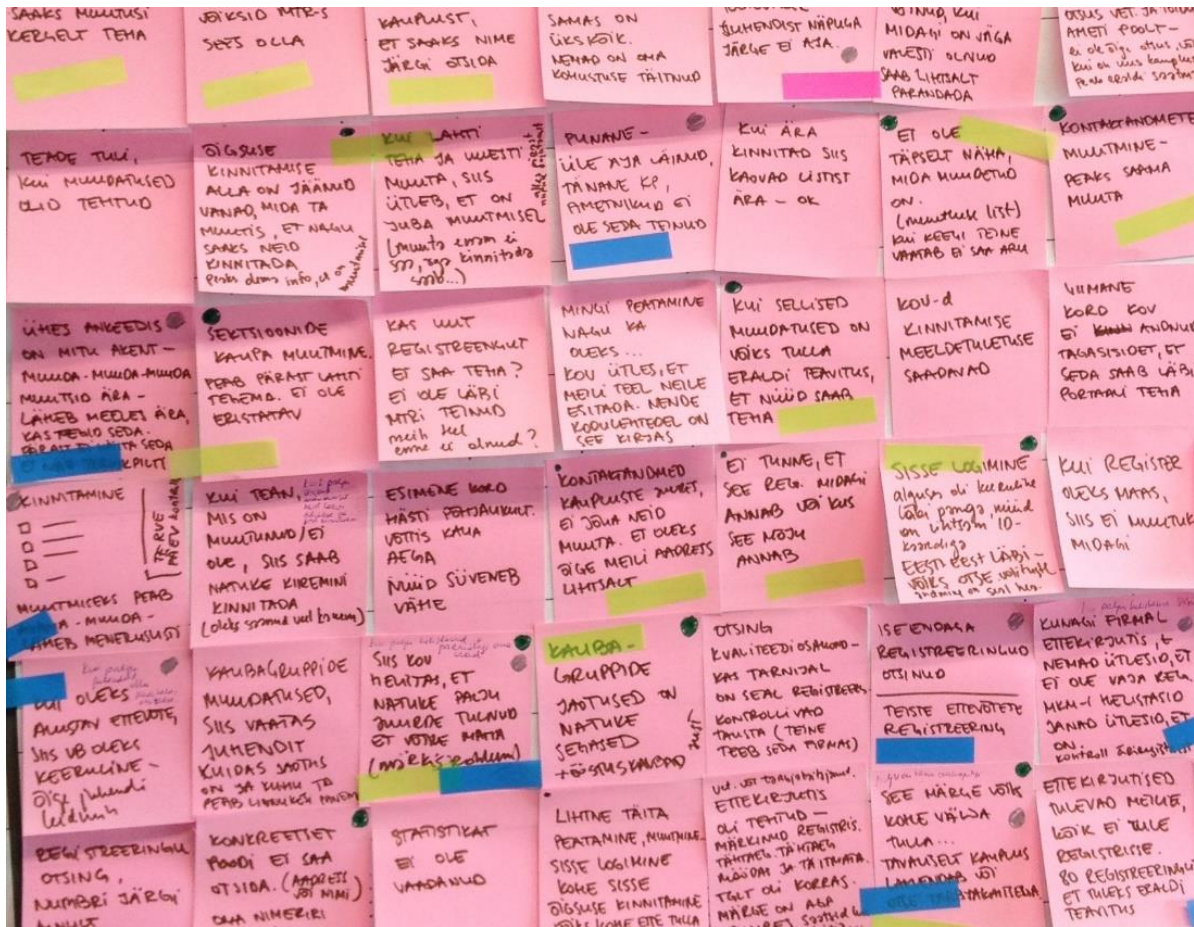 SAAKS MUUTUSI
KERGELT TEHA
VÕIKSID MTR-S
SEES OLLA
KAUPLUST,
ET SAAKS NIME
JÄRGI OTSIDA
SAMAS ON
ÜKSKÕIK.
NEMAD ON OMA
KOHUSTUSE TÄITNUD
JUHENDIST NÄPUGA
JÄRGE EI AJA.
MIDAGI ON VÄGA
VALESTI OLNUD
SAAB LIHTSALT
PARANDADA
AMETI POOLT-
TEADE TULI,
KUI MUUDATUSED
OLID TEHTUD
ÕIGSUSE
KINNITAMISE
ALLA ON JÄÄNUD
VANAD, MIDA TA
MUUTIS, ET NAGU
SAAKS NEID
KINNITADA
peaks olema info, et on
muutmisel
KUI LAHTI
TEHA JA UUESTI
MUUTA, SIIS
ÜTLEB, ET ON
JUBA MUUTMISEL
(muuta enam ei
saa, aga kinnitada
saab...)
PUNANE-
ÜLE AJA LÄINUD,
TÄNANE KP,
AMETNIKUD EI
OLE SEDA TEINUD
KUI ÄRA
KINNITAD SIIS
KAOVAD LISTIST
ÄRA - OK
EI OLE
TÄPSELT NÄHA,
MIDA MUUDETUD
ON.
(muutuse list)
KUI KEEGI TEINE
VAATAB EI SAA ARU
KONTAKTANDMETE
MUUTMINE-
PEAKS SAAMA
MUUTA
ÜHES ANKEEDIS
ON MITU AKENT-
MUUDA-MUUDA-MUUDA
MUUTSID ÄRA-
LÄHEB MEELEST ÄRA,
KAS TEGID SEDA.
SEKTSIOONIDE
KAUPA MUUTMINE.
PEAB PÄRAST LAHTI
TEGEMA. EI OLE
ERISTATAV
KAS UUT
REGISTREERINGUT
EI SAA TEHA?
EI OLE LÄBI
MTRI TEINUD
meil
enne ei olnud?
MINGI PEATAMINE
NAGU KA
OLEKS...
KOV ÜTLES, ET
MEILI TEEL NEILE
ESITADA. NENDE
KODULEHTEDEL ON
SEE KIRJAS
KUI SELLISED
MUUDATUSED ON
VÕIKS TULLA
ERALDI TEAVITUS,
ET NÜÜD SAAB
TEHA
KOV-d
KINNITAMISE
MEELDETULETUSE
SAADAVAD
VIIMANE
KORD KOV
EI ANDNUD
TAGASISIDET, ET
SEDA SAAB LÄBI
PORTAALI TEHA
KINNITAMINE
TERVE
MUUTMISEKS PEAB
MUUDA-MUUDA-
KUI TEAN,
MIS ON
MUUTUNUD/EI
OLE, SIIS SAAB
NATUKE KIIREMINI
KINNITADA
ESIMENE KORD
HÄSTI PÕHJALIKULT.
VÕTTIS KAUA
AEGA
NÜÜD SÜVENEB
VÄHE
KONTAKTANDMED
KAUPLUSTE JURES,
EI JÕUA NEID
MUUTA. ET OLEKS
ÕIGE MEILI AADRESS
LIHTSALT
EI TUNNE, ET
SEE REG. MIDAGI
ANNAB VÕI KUS
SEE MÕJU
ANNAB
SISSE LOGIMINE
alguses oli keeruline
läbi panga, nüüd
on lihtsam ID-
kaardiga
EESTI.EEST LÄBI-
VÕIKS OTSE
KUI REGISTER
OLEKS MAAS,
SIIS EI MUUTUKS
MIDAGI
KUI OLEKS
ALUSTAV ETTEVÕTE,
SIIS VB OLEKS
KEERULINE-
õige juhendi
leidmine
KAUBAGRUPPIDE
MUUDATUSED,
SIIS VAATAS
JUHENDIT
KUIDAS JAOTUS
ON JA KUHU TA
PEAB LINNUKESE PANEMA
SIIS KOV
HELISTAS, ET
NATUKE PALJU
JUURDE TULNUD
ET VÕTKE MAHA
KAUBA-
GRUPPIDE
JAOTUSED ON
NATUKE
SEGASED
TÖÖSTUSKAUBAD
OTSING
KVALITEEDIOSAKOND-
KAS TARNIJAL
ON SEAL REGISTREER.
KONTROLLIVAD
TAUSTA (TEINE
TEEB SEDA FIRMAS)
ISEENDAGA
REGISTREERINGUD
OTSINUD
TEISTE ETTEVÕTETE
REGISTREERING
KUNAGI FIRMAL
ETTEKIRJUTIS,
NEMAD ÜTLESID, ET
EI OLE VAJA REG.
MKM-I HELISTASID
JANAD ÜTLESID, ET
ON.
REGISTREERINGU
OTSING,
NUMBRI JÄRGI
AINULT
KONKREETSET
POODI EI SAA
OTSIDA. (AADRESS
VÕI NIMI)
OMA NIMEKIRI
STATISTIKAT
EI OLE
VAADANUD
LIHTNE TÄITA
PEATAMINE, MUUTMINE.
SISSE LOGIMINE
KOHE SISSE
ÕIGSUSE KINNITAMINE
VÕIKS KOHE ETTE TULLA
ETTEKIRJUTIS
OLI TEHTUD-
MÄRKINUD REGISTRIS.
TÄHTAEG. TÄHTAEG
MÖÖDAS JA TÄITMATA.
TGLT OLI KORRAS.
MÄRGE ON AGA
SEE MÄRGE VÕIKS
KOHE VÄLJA
TULLA...
TAVALISELT KAUPLUS
LAHENDAB VÕI
ETTEKIRJUTISED
TULEVAD MEILILE,
KÕIK EI TULE
REGISTRISSE.
80 REGISTREERINGU
ET TULEKS ERALDI
TEAVITUS